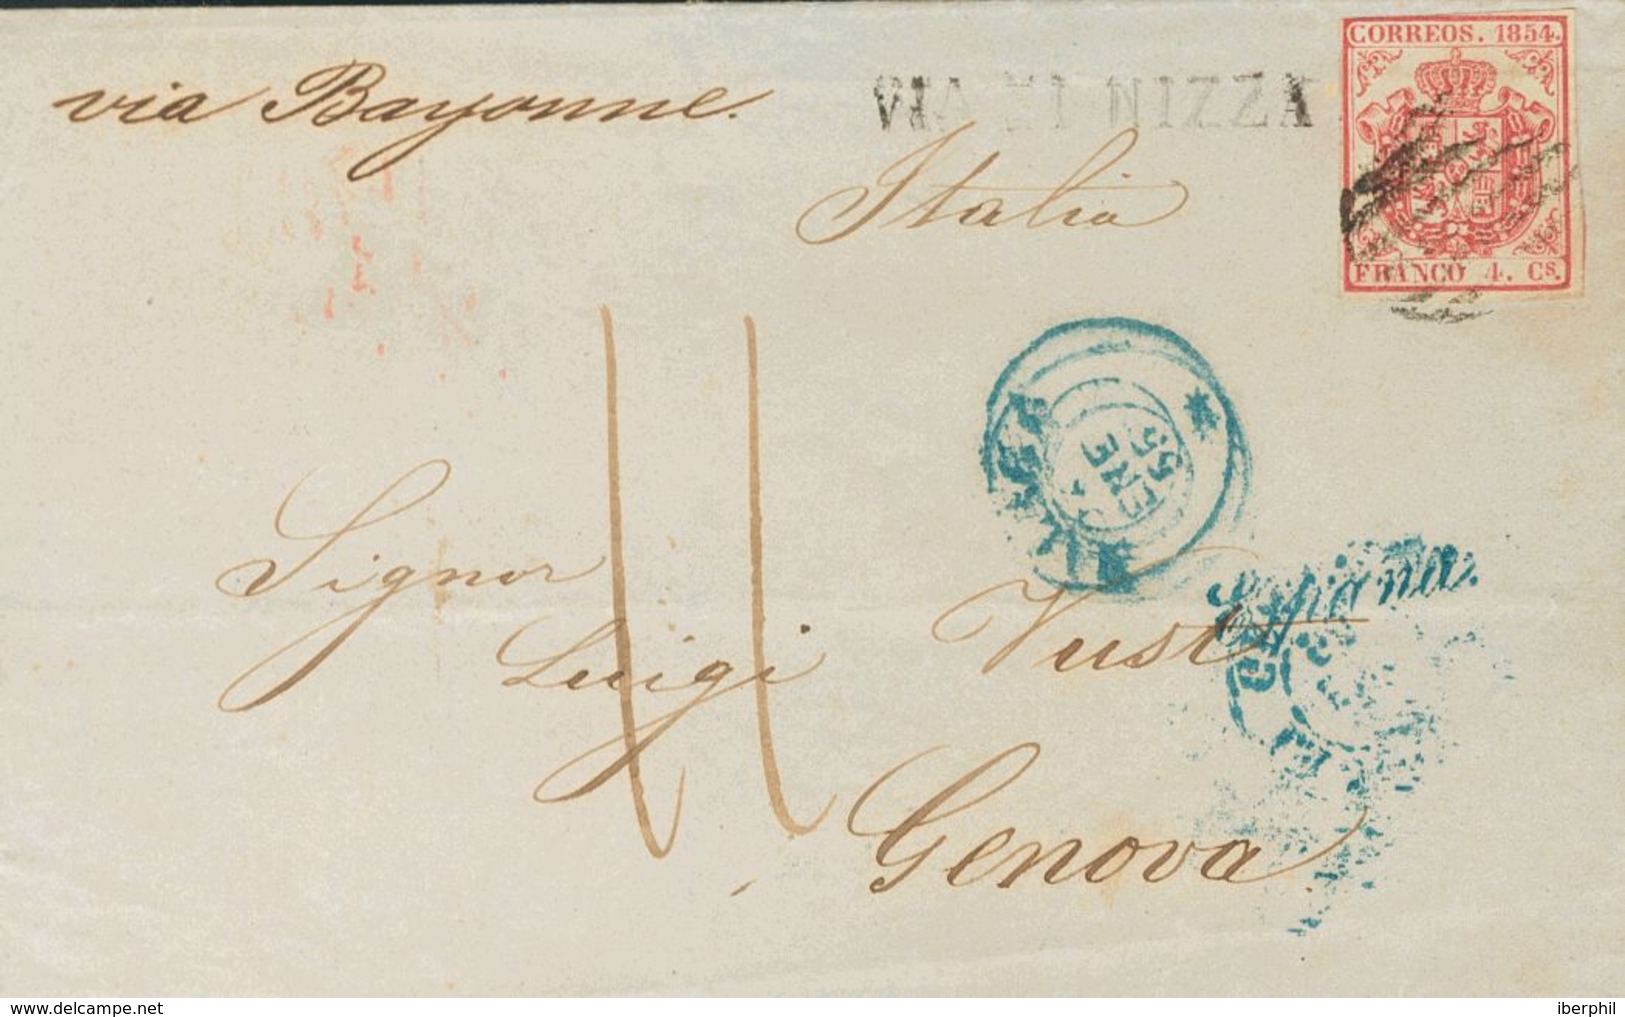 CORREOS. 1854.
via Bayonne.
VIA DI NIZZA
Italia
FRANCO 4. Cs.
ENE
55
España.
Signor
Luigi Vust
Genova
delcampe.net
iberphil